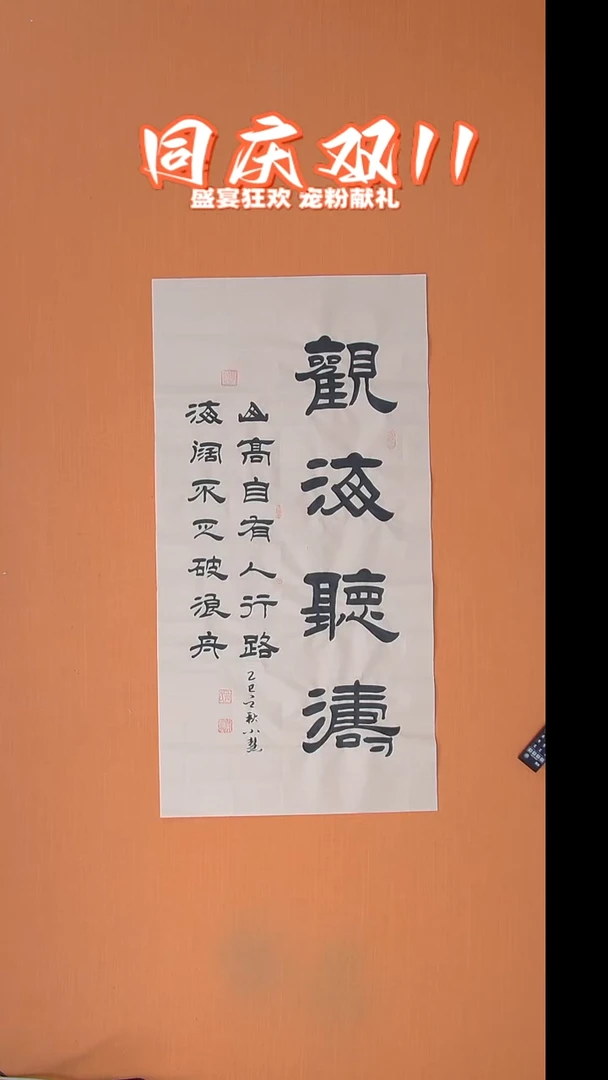 同庆双11
盛宴狂欢 宠粉献礼
觀海聽濤
山髙自有人行路
海阔不乏破浪舟
乙巳之秋小慧